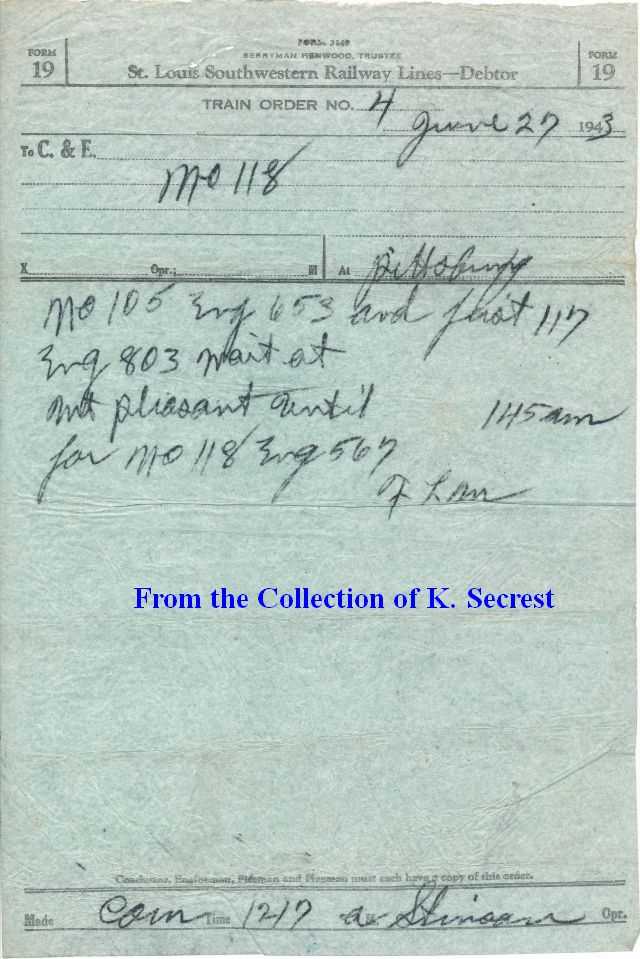 FORM 3149
BERRYMAN HENWOOD, TRUSTEE
FORM 19 St. Louis Southwestern Railway Lines—Debtor FORM 19
TRAIN ORDER NO. 4
June 27 1943
To C. & E.
No 118
X Opr.; M At Pittsburg
No 105 Eng 653 and first 117
Eng 803 wait at
Mt pleasant until 145 am
for No 118 Eng 567
From the Collection of K. Secrest
Conductor, Engineman, Fireman and Flagman must each have a copy of this order.
Made Com Time 1217 a M Opr.